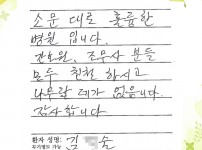 소문 대로 훌륭한
병원 입니다.
간호원, 조무사 분들
모두 친절 하시고
나무랄 데가 없읍니다.
감사합니다
환자 성명: 김 솔